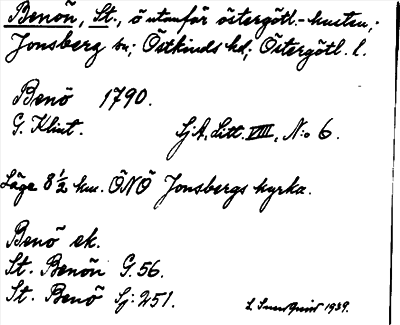 Benön, St., ö utanför östergötl.-kusten;
Jonsberg sn; Östkinds hd; Östergötl. l.
Benö 1790.
G. Klint. SjA, Litt. VIII, N:o 6.
Läge 8 1/2 km. ÖNÖ Jonsbergs kyrka.
Benö ek.
St. Benön G. 56.
St. Benö Sj: 251.
1939.